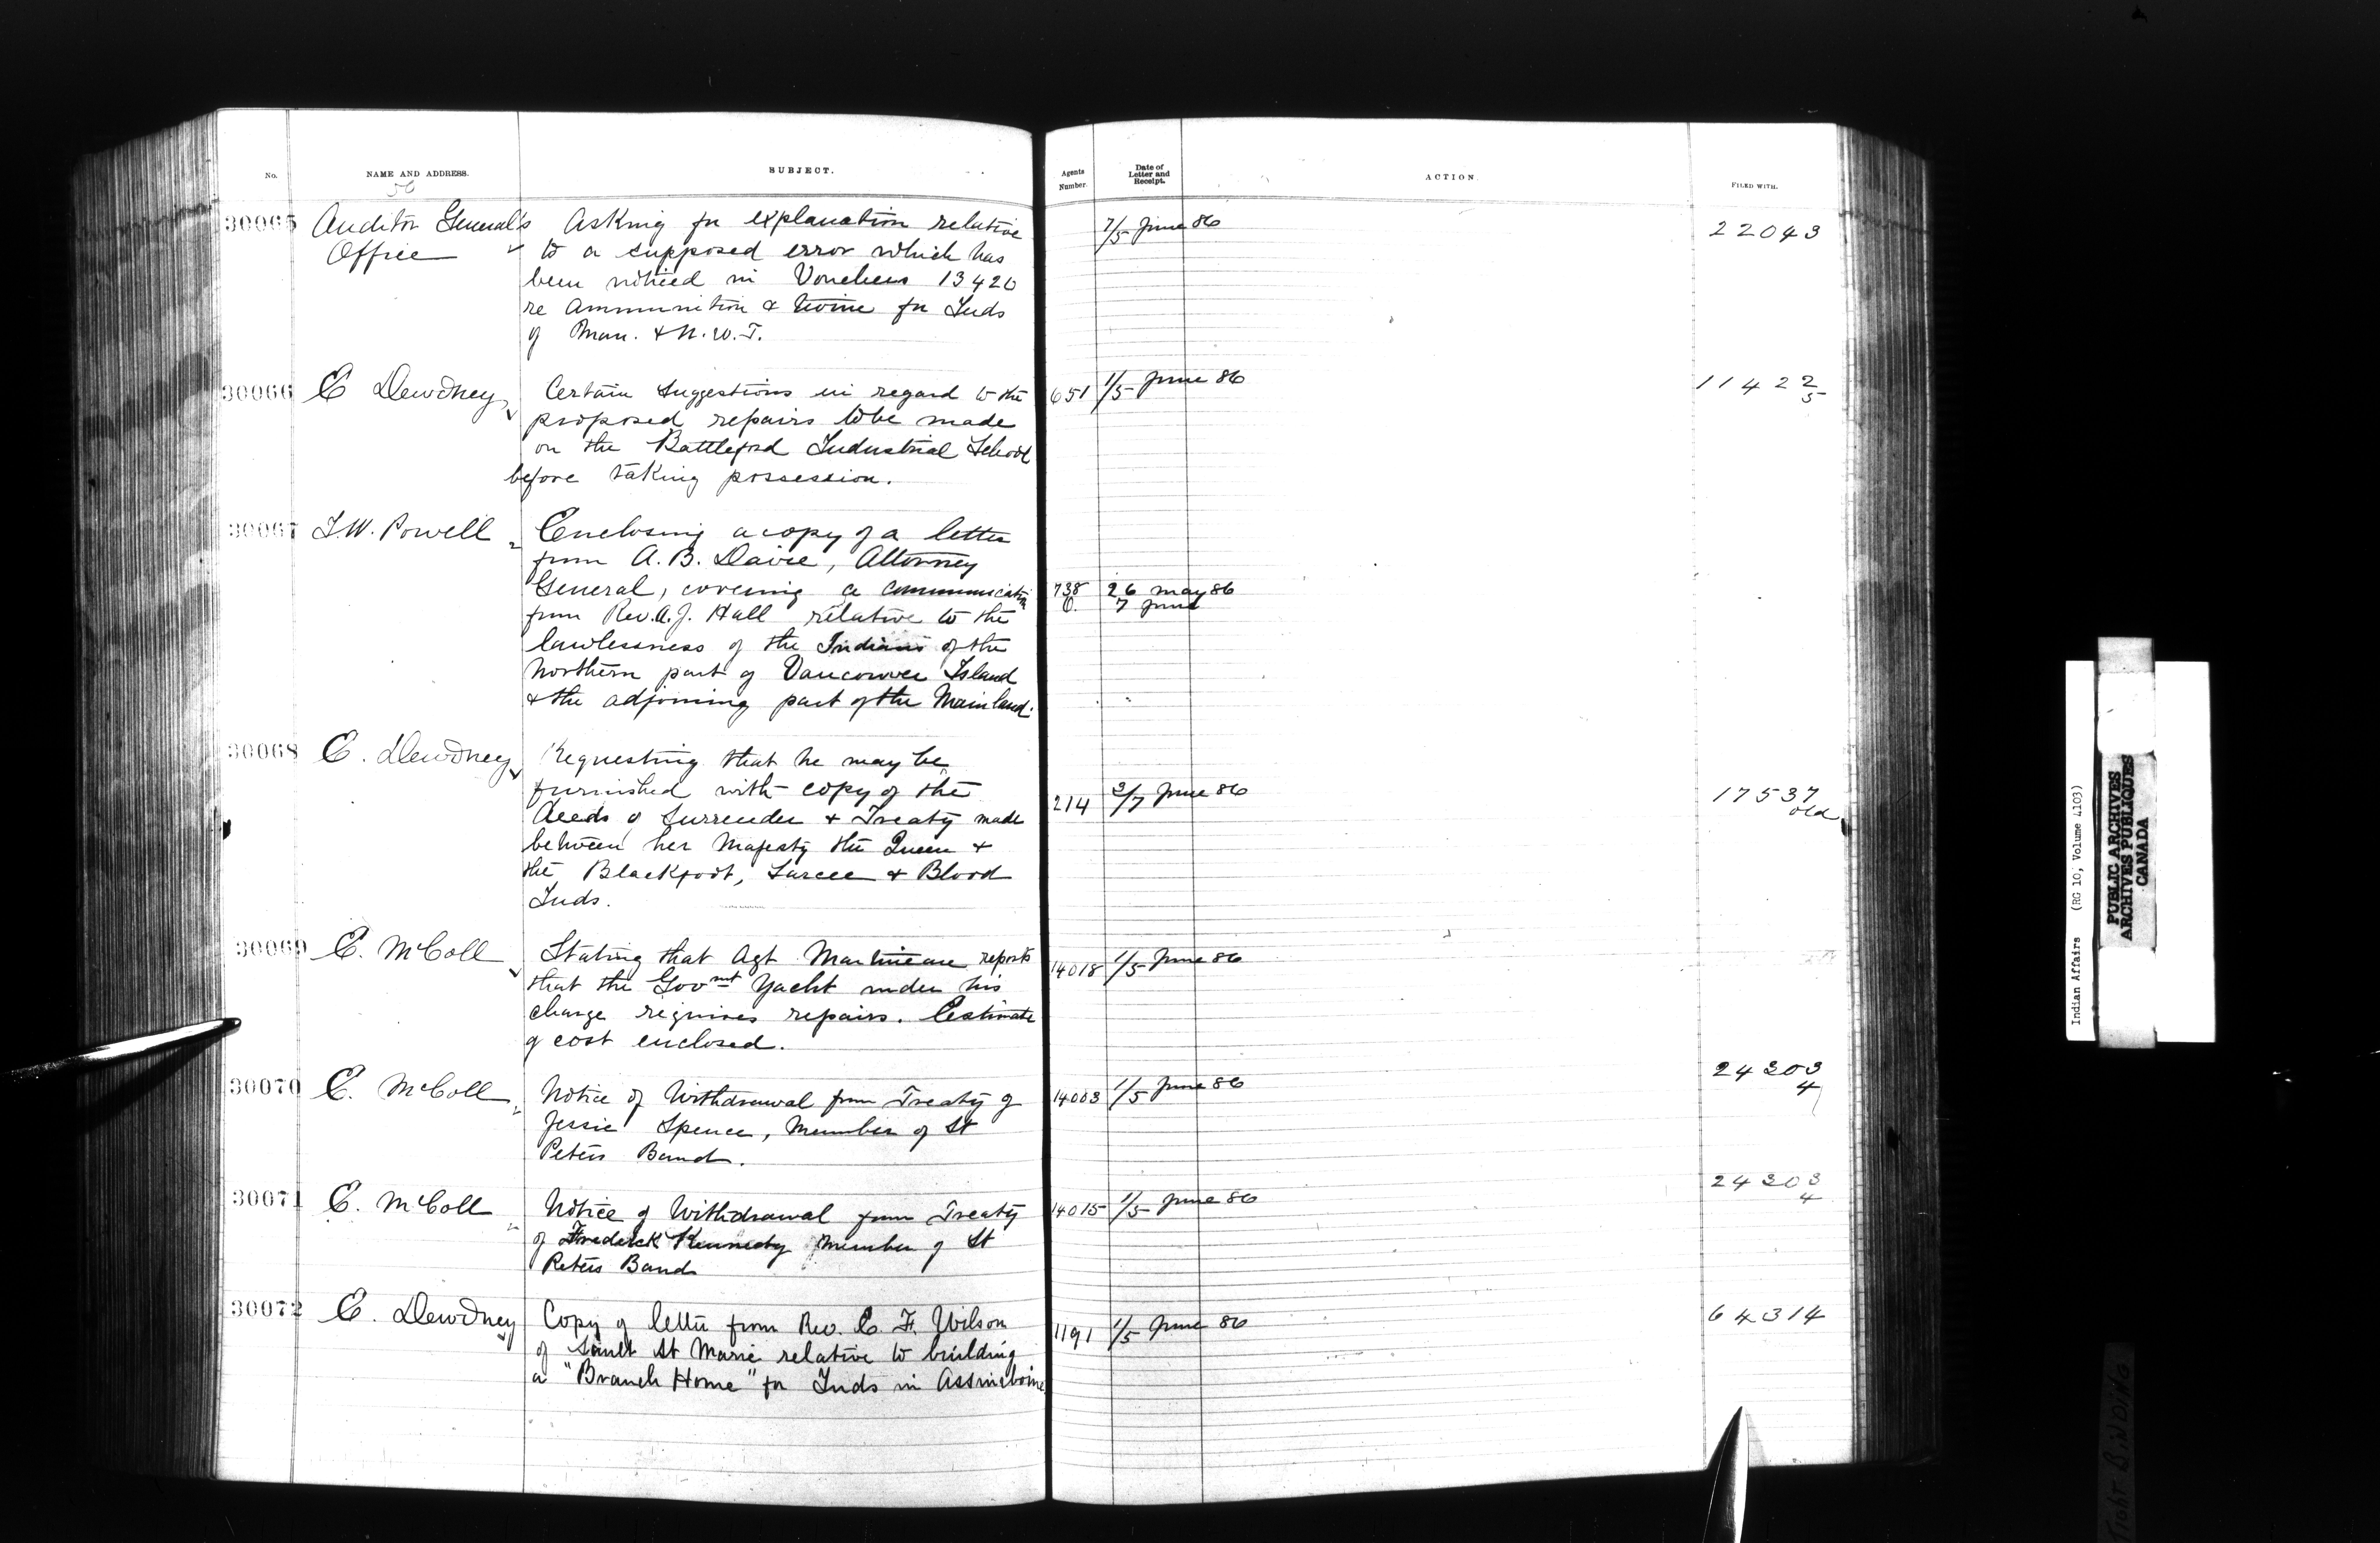 No.
NAME AND ADDRESS.
SUBJECT.
Agents Number.
Date of Letter and Receipt.
ACTION.
FILED WITH.
56
30065 Auditor General's Asking for explanation relative 7/5 June 86 22043
Office to a supposed error which has
been noticed in Vouchers 13420
re Ammunition & twine for Inds
of Man. & N.W.T.
30066 E Dewdney Certain suggestions in regard to the 651 1/5 June 86 11422
proposed repairs to be made 5
on the Battleford Industrial School
before taking possession.
30067 I.W. Powell Enclosing a copy of a letter
from A. B. Davie, Attorney
General, covering a communication 738 26 May 86
from Rev. A. J. Hall relative to the O. 7 June
lawlessness of the Indians of the
Northern part of Vancouver Island
& the adjoining part of the Mainland.
30068 E. Dewdney Requesting that he may be
furnished with copy of the 214 3/7 June 86 17537
Deeds of Surrender & Treaty made old
between her Majesty the Queen &
the Blackfoot, Sarcee & Blood
Inds.
30069 E. McColl Stating that Agt Martineau reports 14018 1/5 June 86
that the Govmt Yacht under his
charge requires repairs. Estimate
of cost enclosed.
30070 E. McColl Notice of Withdrawal from Treaty of 14003 1/5 June 86 24303
Jessie Spence, Member of St 4
Peters Band.
30071 E. McColl Notice of Withdrawal from Treaty 14015 1/5 June 86 24303
of Frederick Kennedy Member of St 4
Peters Band
30072 E. Dewdney Copy of letter from Rev. E. F. Wilson 1191 1/5 June 86 64314
of Sault St Marie relative to building
a "Branch Home" for Inds in Assiniboine
Indian Affairs (RG 10, Volume 4103)
PUBLIC ARCHIVES
ARCHIVES PUBLIQUES
CANADA
TIGHT BINDING